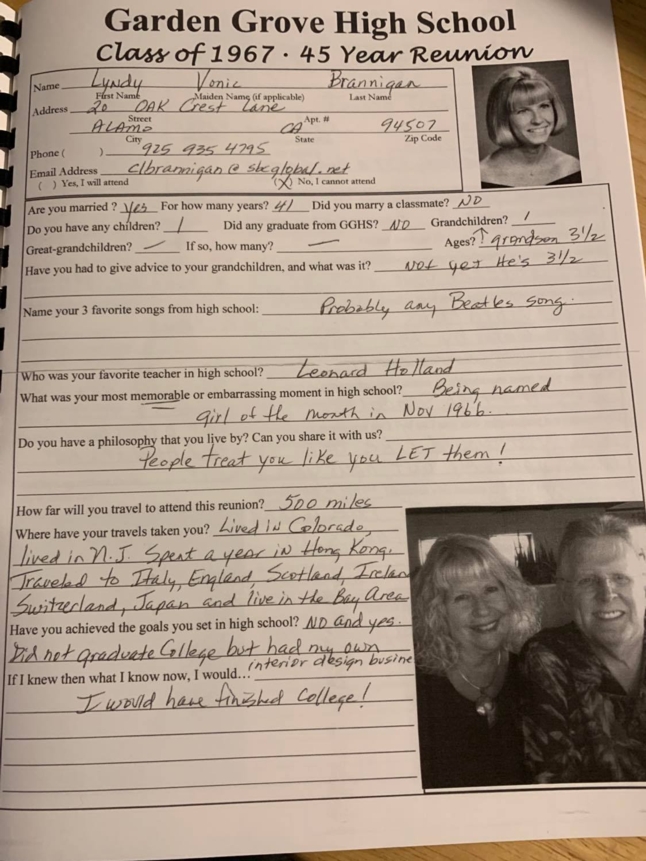 Garden Grove High School
Class of 1967 · 45 Year Reunion
Name Lyndy Vonic Brannigan
First Name Maiden Name (if applicable) Last Name
Address 20 OAK Crest Lane
Street Apt. #
ALAMO CA 94507
City State Zip Code
Phone ( ) 925 935 4795
Email Address clbrannigan@sbcglobal.net
( ) Yes, I will attend (X) No, I cannot attend
Are you married? Yes For how many years? 41 Did you marry a classmate? NO
Do you have any children? 1 Did any graduate from GGHS? NO Grandchildren? 1
Great-grandchildren? — If so, how many? — Ages? ↑ grandson 3 1/2
Have you had to give advice to your grandchildren, and what was it? Not yet He's 3 1/2
Name your 3 favorite songs from high school: Probably any Beatles song.
Who was your favorite teacher in high school? Leonard Holland
What was your most memorable or embarrassing moment in high school? Being named
girl of the month in Nov 1966.
Do you have a philosophy that you live by? Can you share it with us?
People treat you like you LET them!
How far will you travel to attend this reunion? 500 miles
Where have your travels taken you? Lived in Colorado,
lived in N.J. Spent a year in Hong Kong.
Traveled to Italy, England, Scotland, Irelan
Switzerland, Japan and live in the Bay Area
Have you achieved the goals you set in high school? NO and yes.
Did not graduate College but had my own
interior design busine
If I knew then what I know now, I would...
I would have finished College!